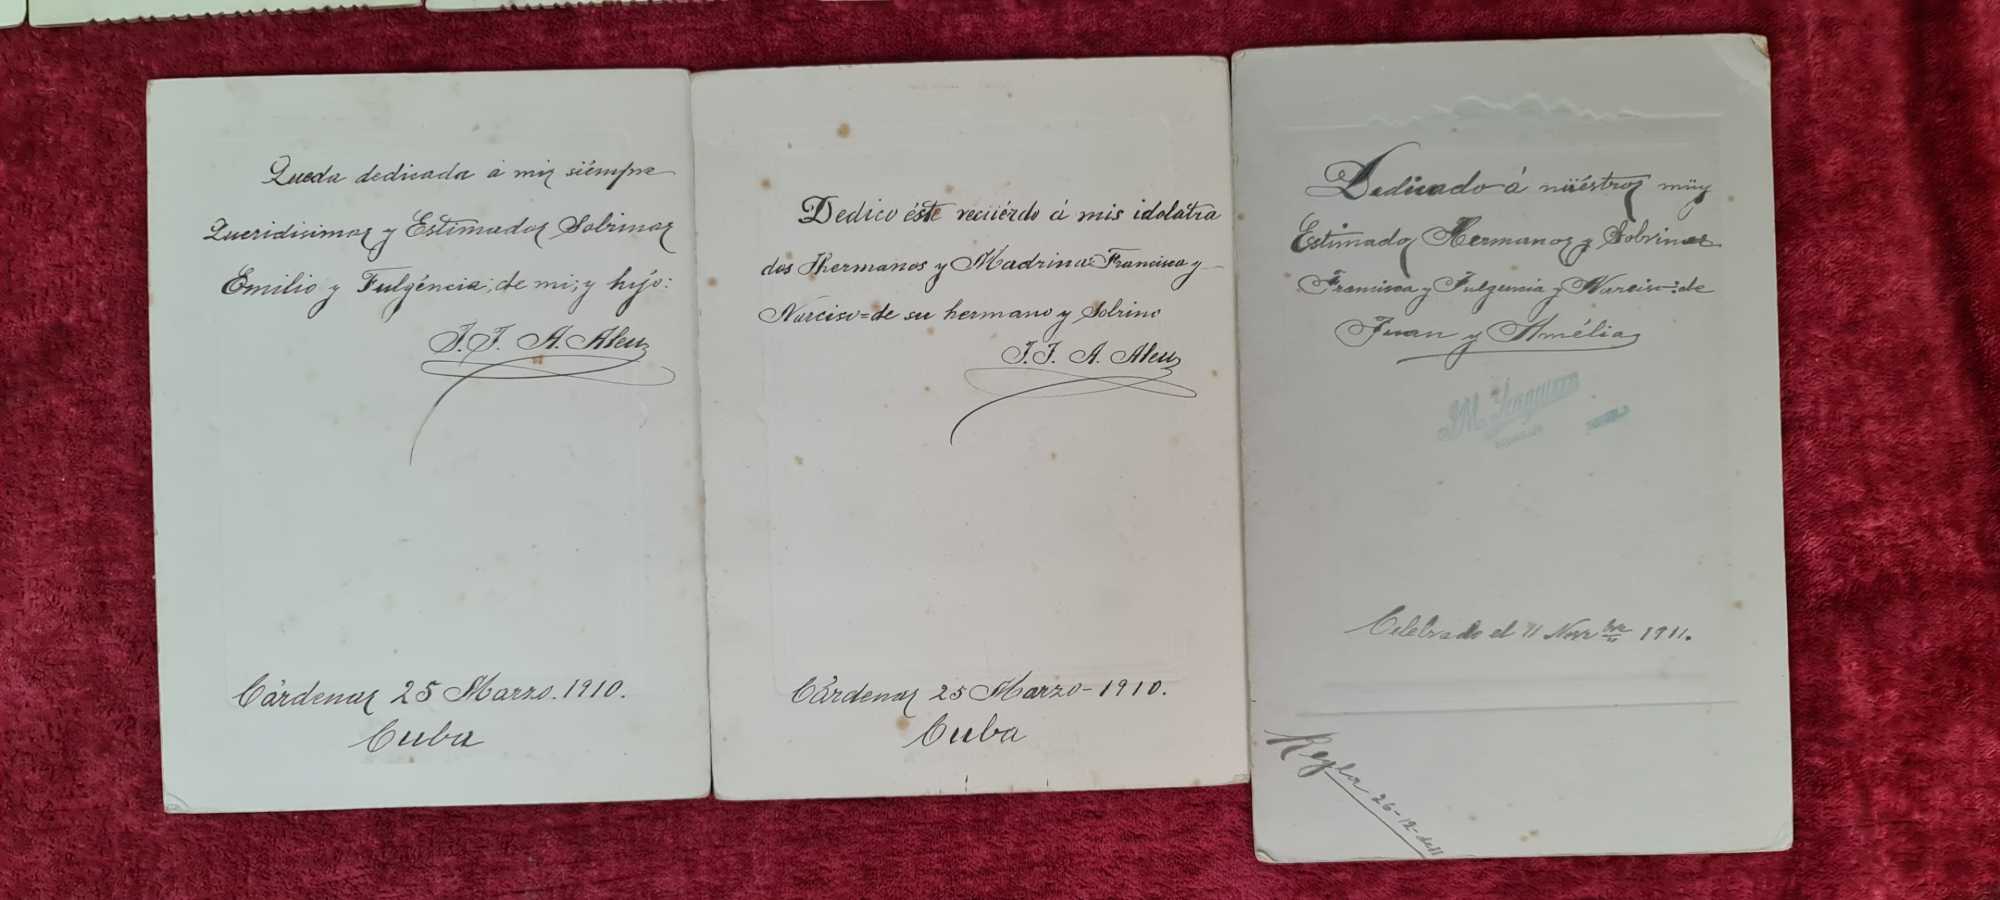 Queda dedicada á mis siémpre
Queridisimos y Estimados Sobrinos
Emilio y Fulgéncia; de mi; y hijo:
J. J. A. Aleu
Cárdenas 25 Marzo. 1910.
Cuba
Dedico éste recüérdo á mis idolátra
dos Hermanos y Madrina: Francisca y
Narciso = de su hermano y Sobrino
J. J. A. Aleu
Cárdenas 25 Marzo - 1910.
Cuba
Dedicado á nüéstros müy
Estimados Hermanos y Sobrinos
Francisca y Fulgencia y Narciso: de
Juan y Amélia
J.M.
Celebrado el 11 Novbre 1911.
Regla 26-12-de 11